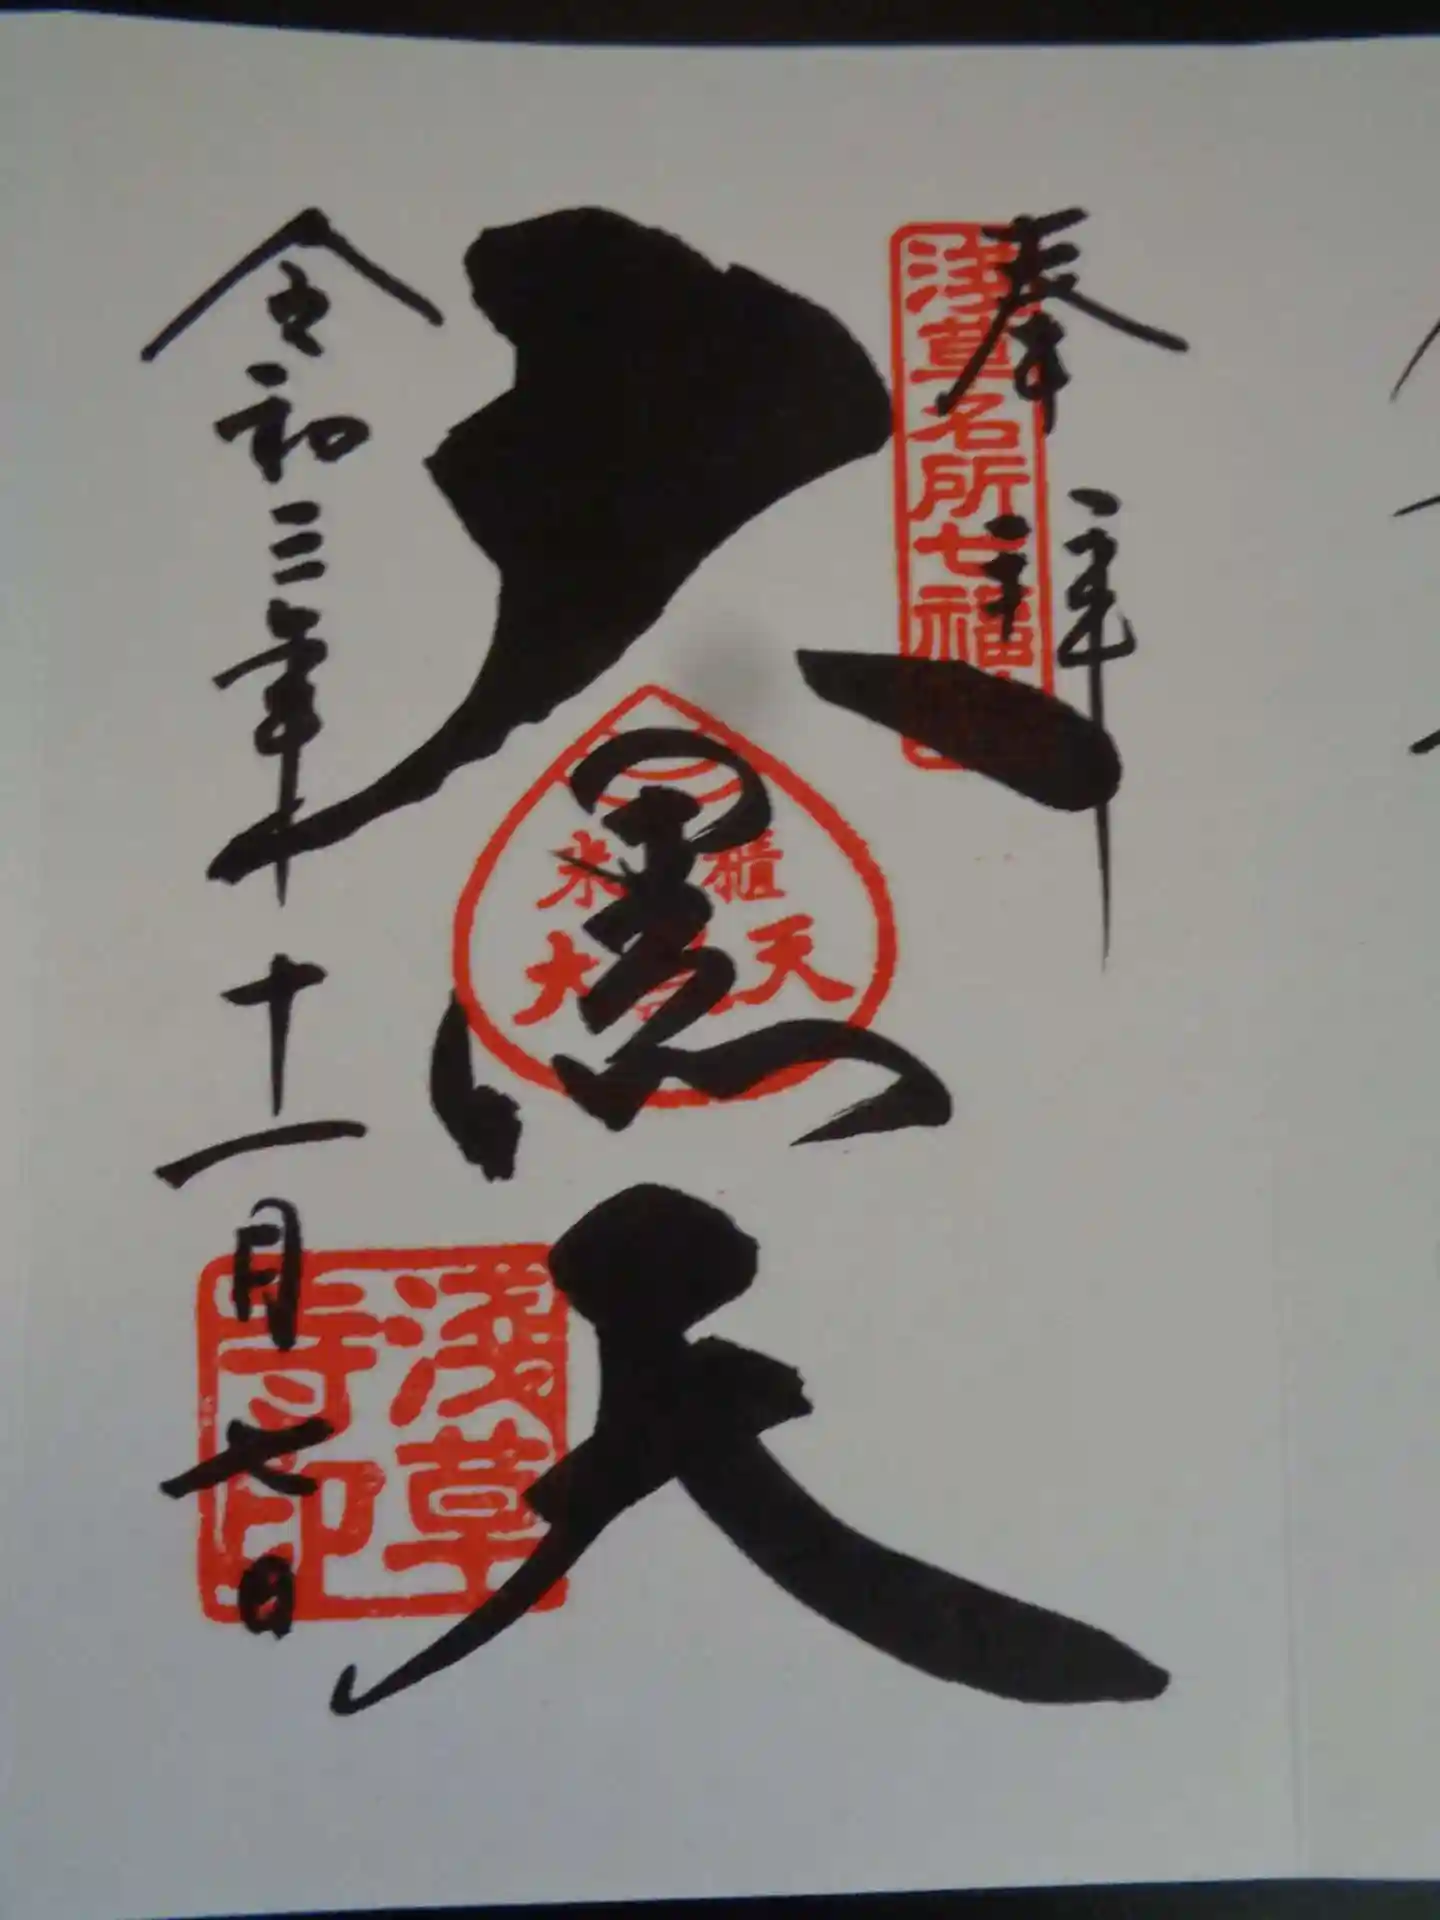 奉拝
浅草名所七福
大黒天
米櫃
大黒天
令和三年十一月七日
浅草
寺印